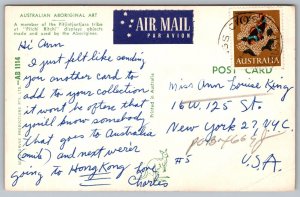 AUSTRALIAN ABORIGINAL ART
A member of the Kitjantjatjara tribe
"Ritchi Ritchi" displays objects
made and used by the Aborigines.
AIR MAIL
PAR AVION
10c
AUSTRALIA
AB 1114
POST CARD
Printed in Australia
Hi Ann
I just felt like sending
you another card to
add to your collection
it won't be often that
you'll know somebody
that goes to Australia
(smile) and next we're
going to Hong Kong Love
Charles
Miss Ann Louise King
16W. 125 St.
New York 27 N.Y.C.
#5
U.S.A.